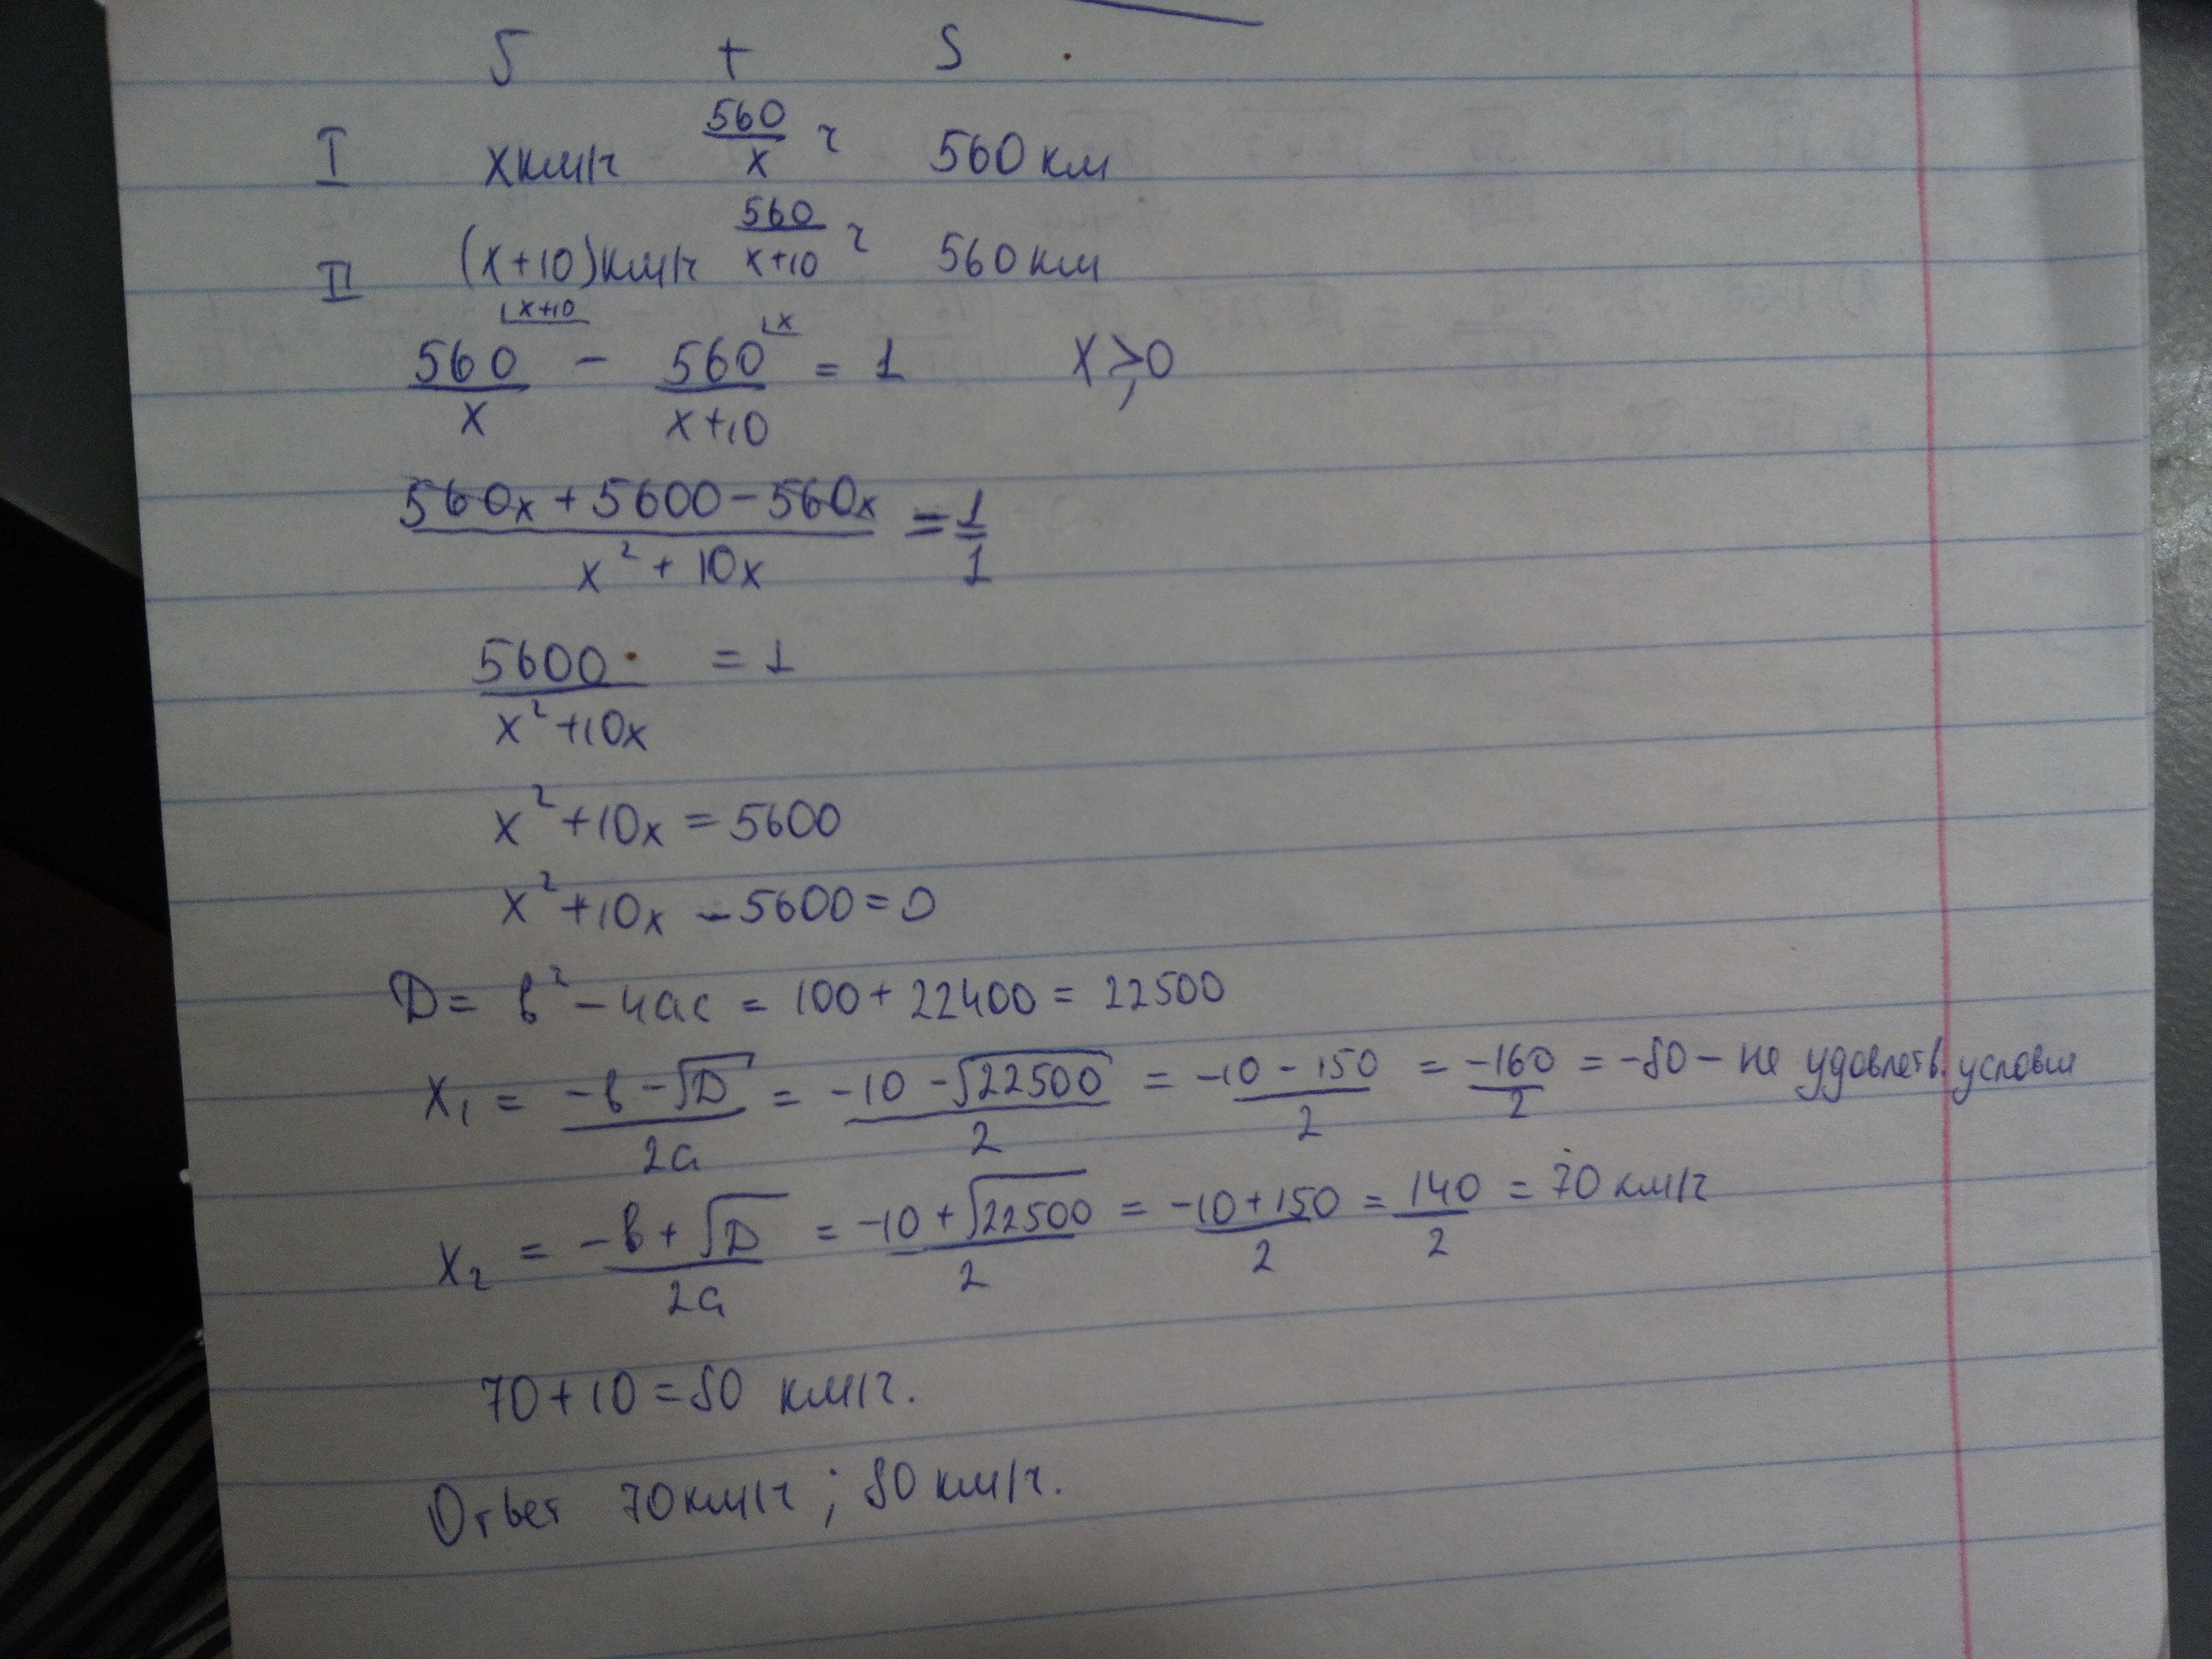 S t S
I x км/ч 560/x ч 560 км
II (x+10)км/ч 560/x+10 ч 560 км
560/x ⌊x+10 - 560/x+10 ⌊x = 1 x>0,
560x+5600-560x/x²+10x = 1/1
5600/x²+10x = 1
x²+10x=5600
x²+10x-5600=0
D = b²-4ac = 100+22400 = 22500
x₁ = -b-√D/2a = -10-√22500/2 = -10-150/2 = -160/2 = -80 - не удовлетв. условия
x₂ = -b+√D/2a = -10+√22500/2 = -10+150/2 = 140/2 = 70 км/ч
70+10=80 км/ч.
Ответ 70 км/ч; 80 км/ч.